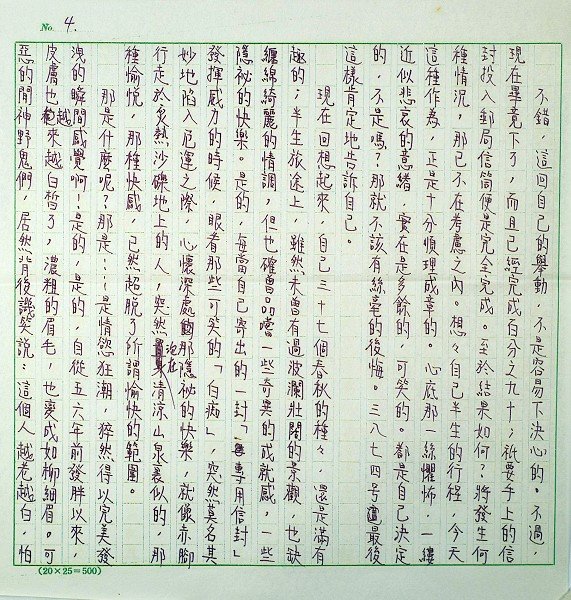 No. 4.
不錯，這回自己的舉動，不是容易下決心的。不過，
現在畢竟下了，而且已經完成百分之九十；祇要手上的信
封投入郵局信筒便是完全完成。至於結果如何？將發生何
種情況，那已不在考慮之內。想々自己半生的行徑，今天
這種作為，正是十分順理成章的。心底那一絲懼怖，一縷
近似悲哀的意緒，實在是多餘的，可笑的。都是自己決定
的，不是嗎？那就不該有絲毫的後悔。三八七四号遭最後
這樣肯定地告訴自己。
現在回想起來，自己三十七個春秋的種々，還是滿有
趣的；半生旅途上，雖然未曾有過波瀾壯闊的景觀，也缺
纏綿綺麗的情調，但也確曾品嚐一些奇異的成就感，一些
隱祕的快樂。是的，每當自己寄出的一封「專用信封」
發揮威力的時候，眼看那些可笑的「白痴」，突然莫名其
妙地陷入厄運之際，心懷深處動那隱祕的快樂，就像赤腳
行走於炙熱沙磧地上的人，突然浸在清涼山泉裏似的，那
種愉悅，那種快感，已然超脫了所謂愉快的範圍。
那是什麼呢？那是⋯⋯是情慾狂潮，猝然得以完美發
洩的瞬間感覺啊！是的，是的，自從五六年前發胖以來，
皮膚也越來越白皙了，濃粗的眉毛，也變成如柳細眉。可
惡的閒神野鬼們，居然背後譏笑說：這個人越老越白，怕
(20×25=500)